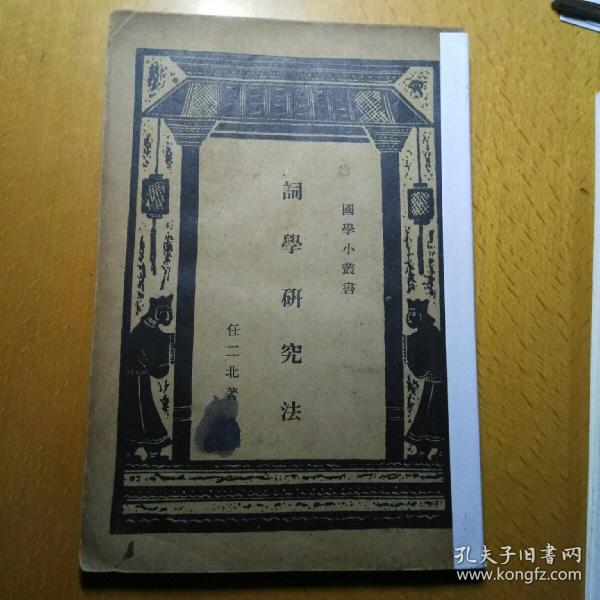 國學小叢書
詞學研究法
任二北著
孔夫子旧書网
www.kongfz.com